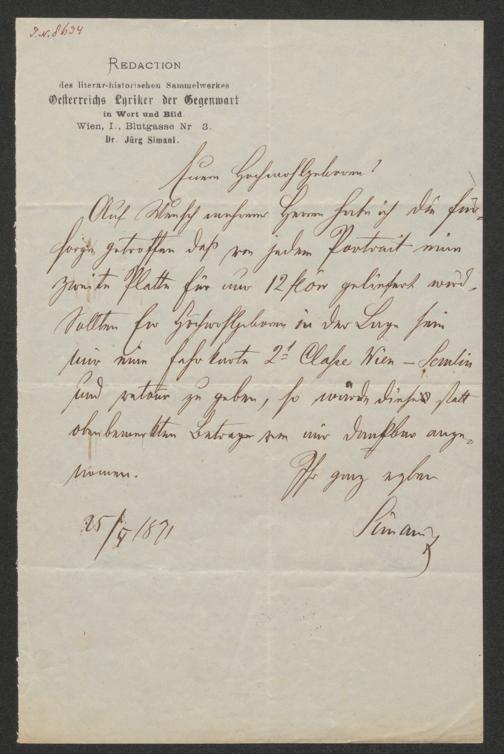 J.N. 8634
REDACTION
des literar-historischen Sammelwerkes
Oesterreichs Lyriker der Gegenwart
in Wort und Bild.
Wien, I., Blutgasse Nr 3.
Dr. Jürg Simani.
Euer Hochwohlgeboren!
Auf Wunsch mehrerer Herren habe ich die Für-
sorge getroffen daß von jedem Portrait eine
zweite Platte für nur 12 flöW geliefert wird.
Sollten Ew Hochwohlgeboren in der Lage sein
mir eine Fahrkarte 2t Classe Wien – Semlin
und retour zu geben, so würde dieses statt
obenbemerkten Betrages von mir dankbar ange-
nomen.
Ihr ganz ergeben
Simani
25/5 1891